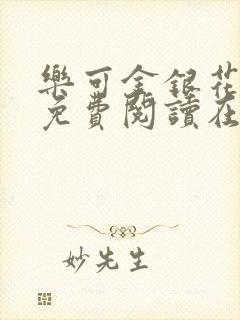 樂可金銀花
免費閱讀在
妙先生